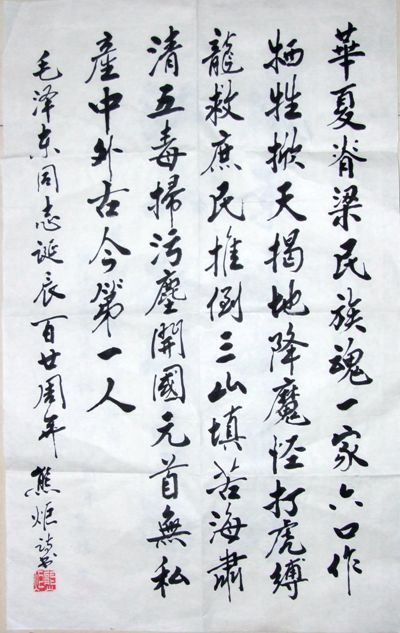 華夏脊梁民族魂一家六口作
牺牲掀天揭地降魔怪打虎缚
龍救庶民推倒三山填苦海肅
清五毒掃污塵開國元首無私
産中外古今第一人
毛泽东同志誕辰百廿周年 熊炬诗书